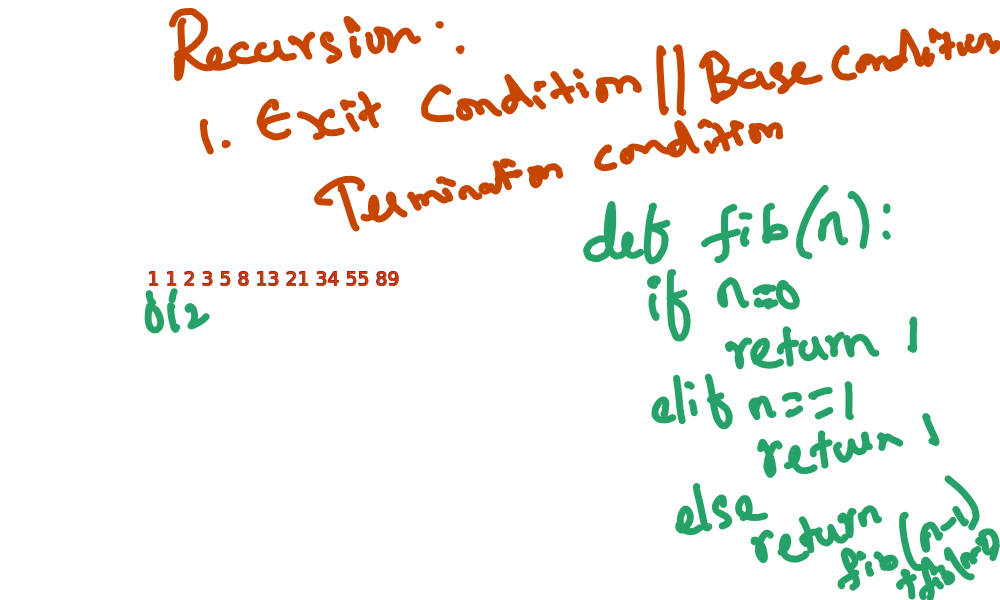 Recursion:
1. Exit Condition || Base Condition
Termination condition
def fib(n):
1 1 2 3 5 8 13 21 34 55 89
0 1 2
if n==0
return 1
elif n==1
return 1
else
return
fib(n-1)
+fib(n-2)